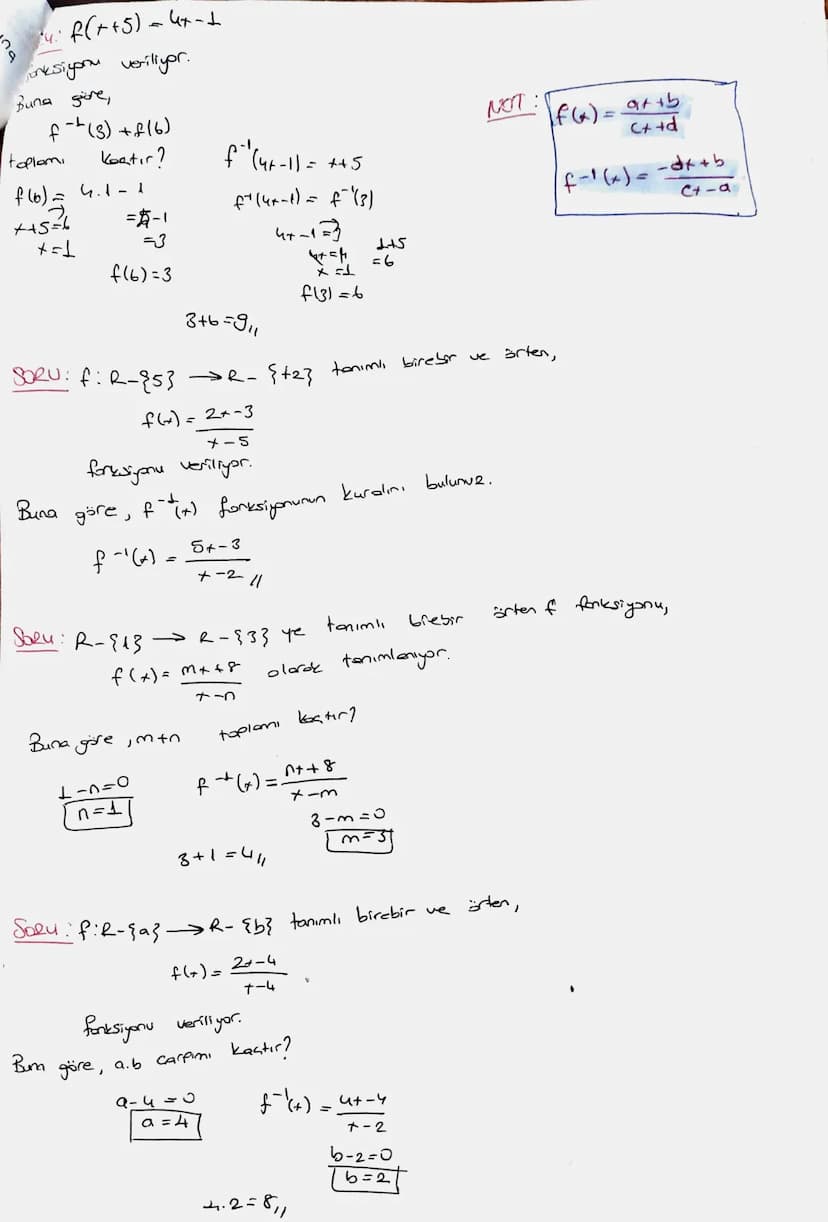 f(x+5) = 4x-1
fonksiyonu veriliyor.
Buna göre,
f⁻¹(3) + f(6)
toplamı kaçtır?
f(6) = 4.1-1
x+5=6
x=1
=4-1
=3
f(6)=3
f⁻¹(4x-1) = x+5
f⁻¹(4x-1) = f⁻¹(3)
4x-1=3
4x=4
x=1
1+5
=6
f(3)=6
3+6=9,,
NOT:
f(x) = (ax+b)/(cx+d)
f⁻¹(x) = (-dx+b)/(cx-a)
SORU: f: R-{5} → R-{+2} tanımlı birebir ve örten,
f(x) = (2x-3)/(x-5)
fonksiyonu veriliyor.
Buna göre, f⁻¹(x) fonksiyonunun kuralını bulunuz.
f⁻¹(x) = (5x-3)/(x-2),,
Soru: R-{1} → R-{3} ye tanımlı birebir örten f fonksiyonu,
f(x) = (mx+8)/(x-n) olarak tanımlanıyor.
Buna göre, m+n toplamı kaçtır?
1-n=0
n=1
f⁻¹(x) = (nx+8)/(x-m)
3-m=0
m=3
3+1=4,,
Soru: f:R-{a} → R-{b} tanımlı birebir ve örten,
f(x) = (2x-4)/(x-4)
fonksiyonu veriliyor.
Buna göre, a.b çarpımı kaçtır?
a-4=0
a=4
f⁻¹(x) = (4x-4)/(x-2)
b-2=0
b=2
4.2=8,,